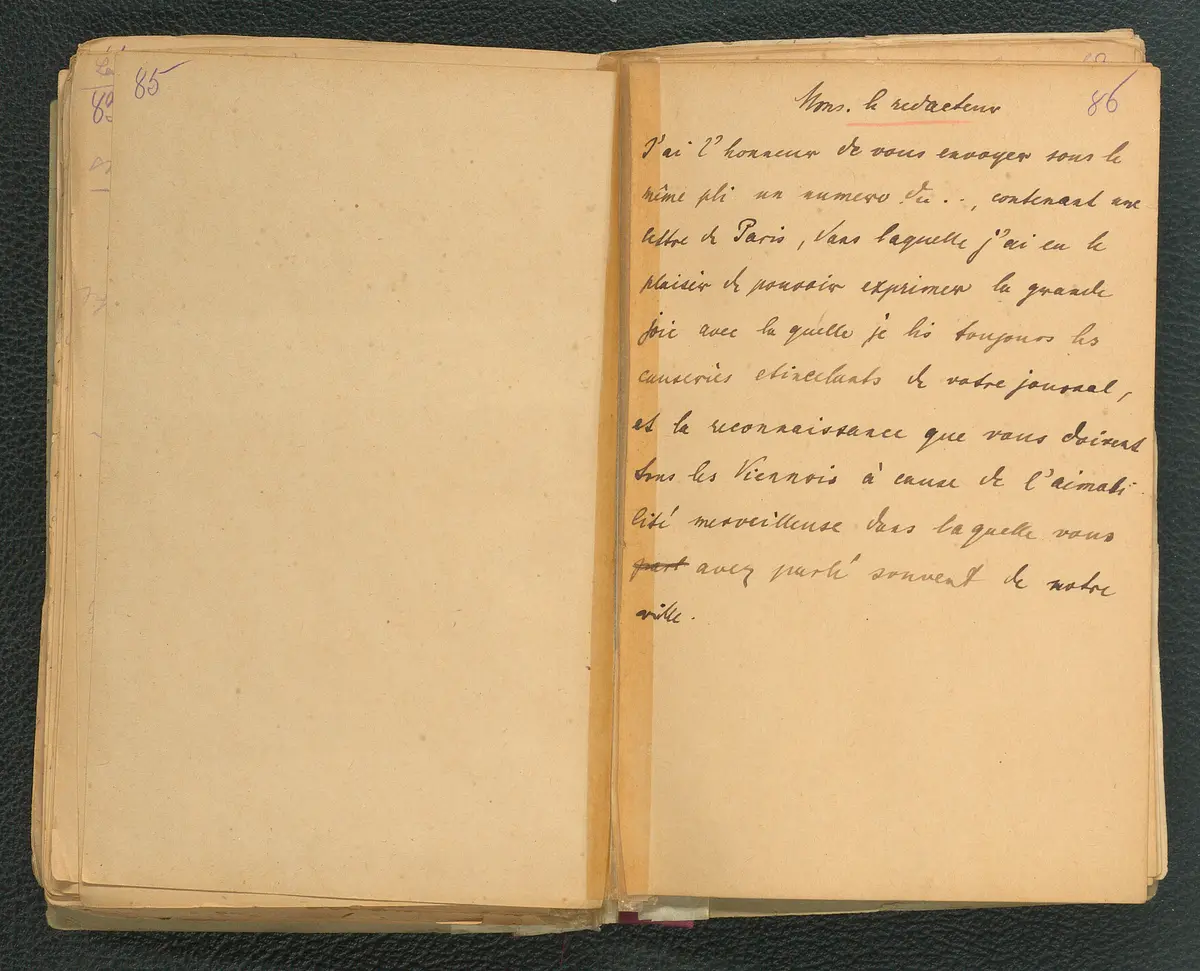 85
86
Mons. le redacteur
J'ai l'honneur de vous envoyer sous le
même pli un numero du . . , contenant une
lettre de Paris, dans laquelle j'ai eu le
plaisir de pouvoir exprimer la grande
joie avec laquelle je lis toujours les
causeries etincelants de votre journal,
et la reconnaissance que vous doivent
tous les Viennois à cause de l'aimabi-
lité merveilleuse dans laquelle vous
avez parlé souvent de notre
ville.